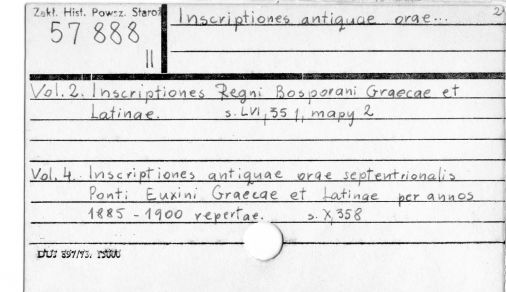 Zakł. Hist. Powsz. Staroż
Inscriptiones antiquae orae...
57 888
II
Vol. 2. Inscriptiones Regni Bosporani Graecae et
Latinae. s. LVI, 351, mapy 2
Vol. 4. Inscriptiones antiquae orae septentrionalis
Ponti Euxini Graecae et Latinae per annos
1885 - 1900 repertae. s. X, 358
DUJ 897/73.